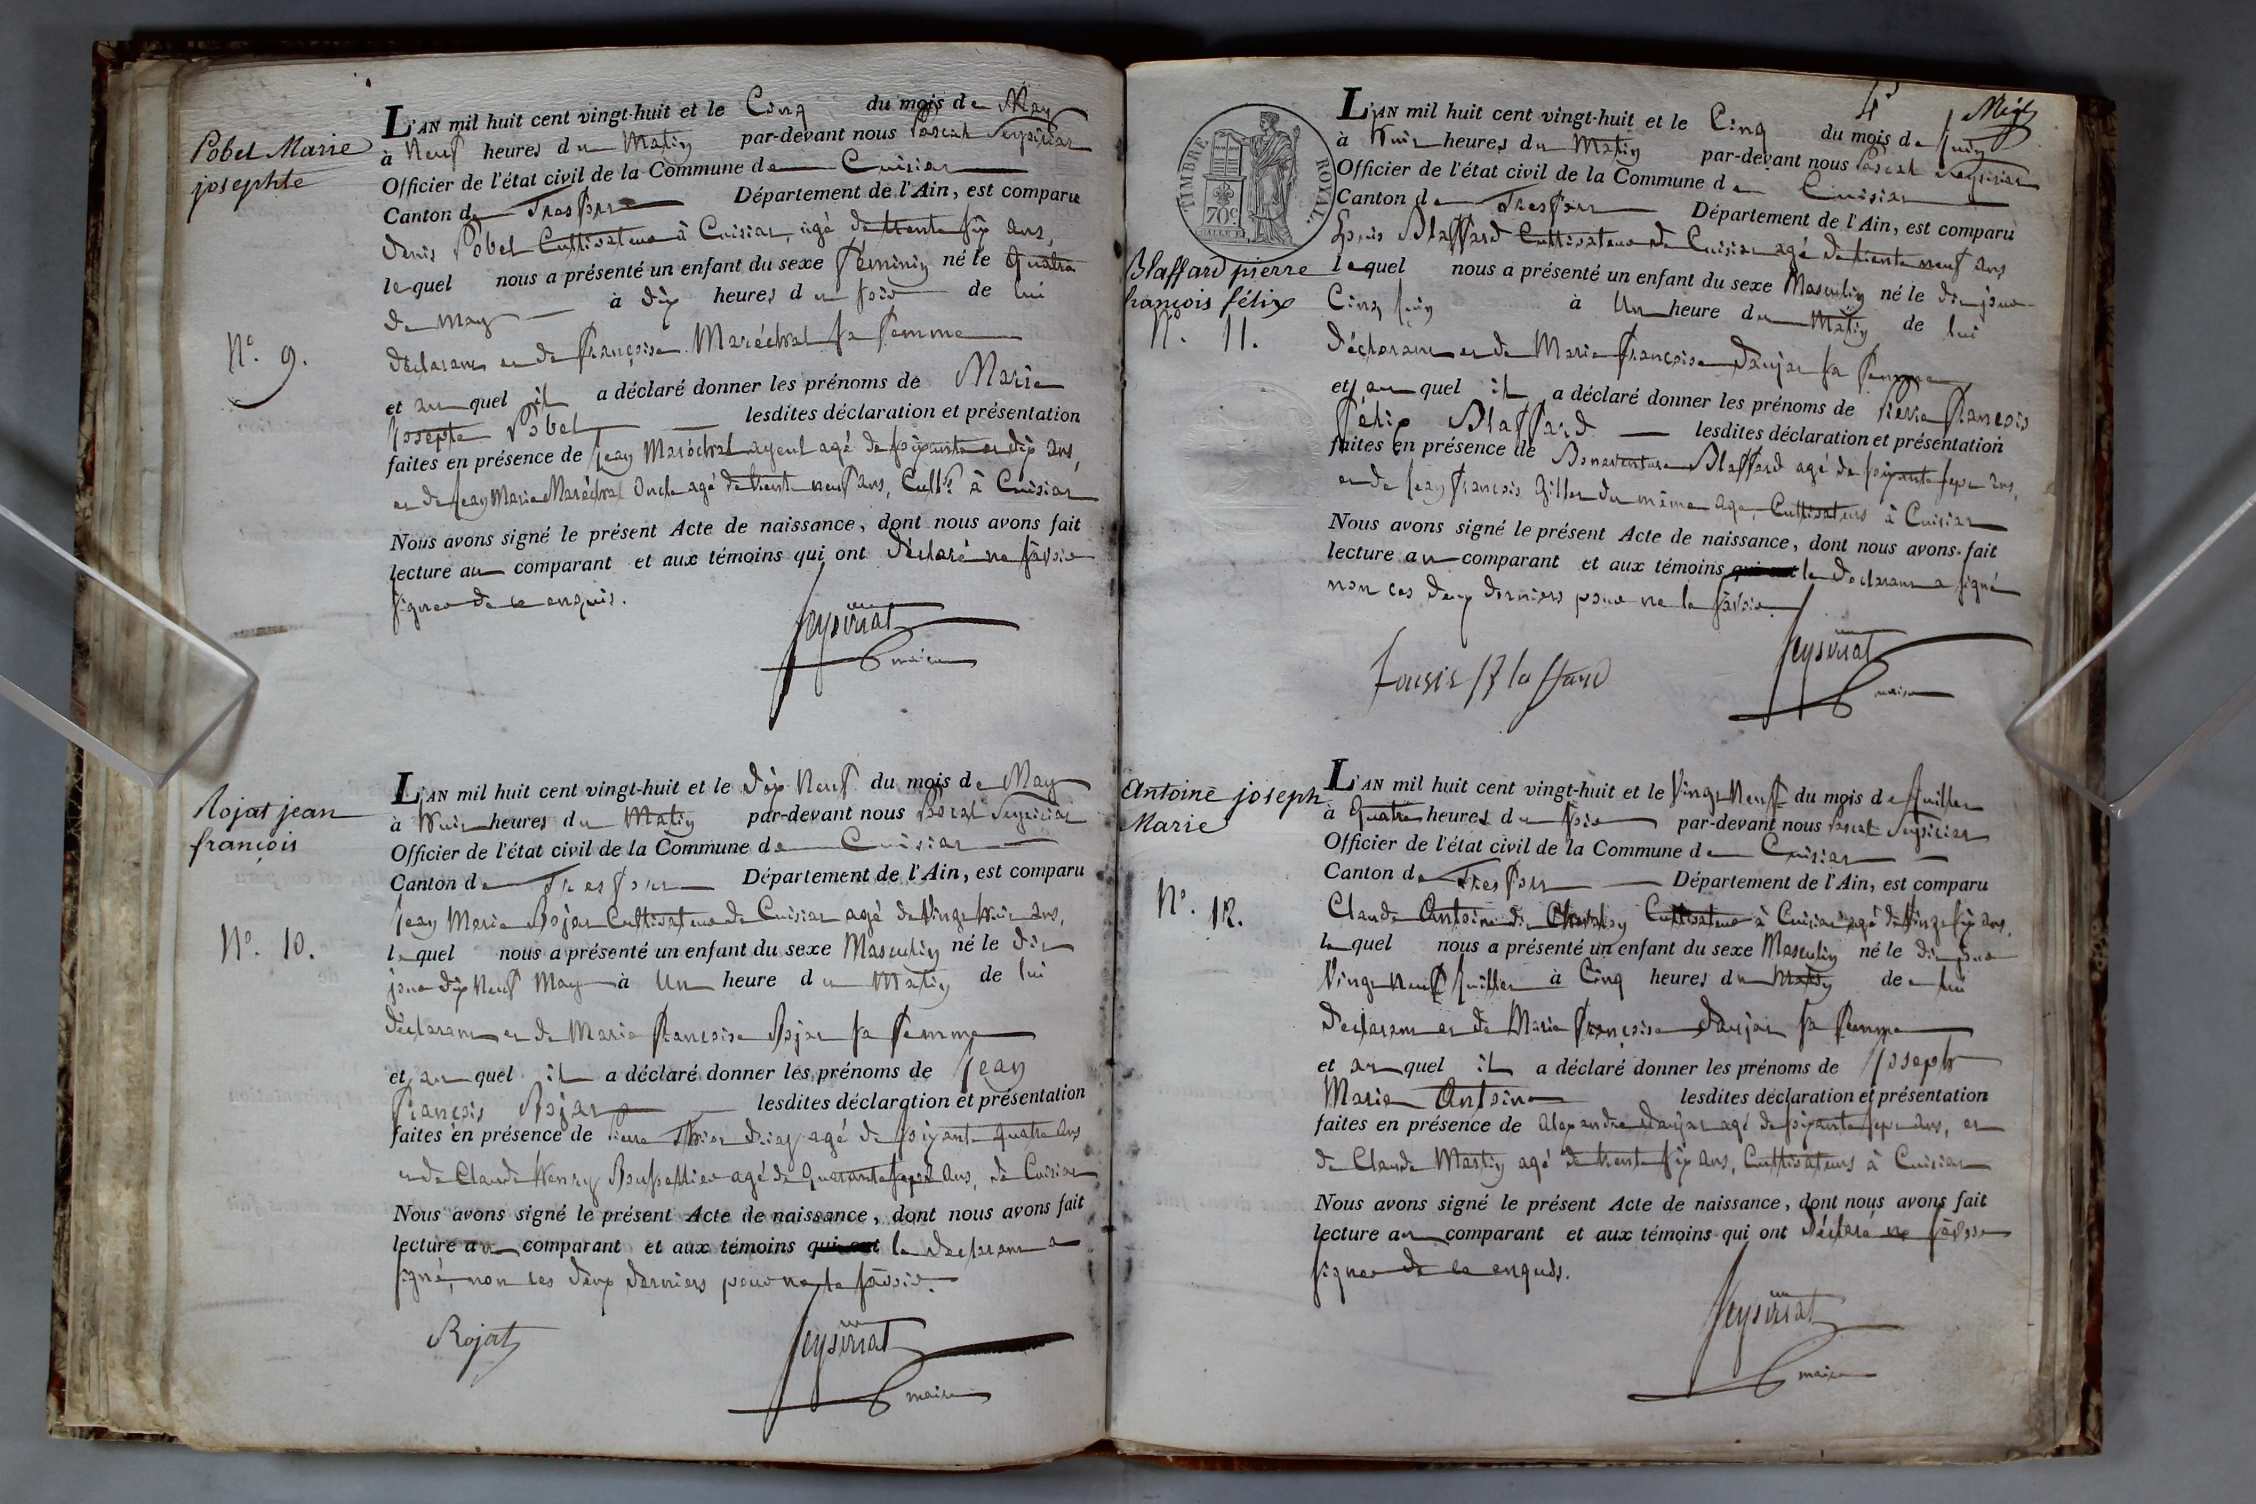 Pobel Marie
josephte
N.° 9.
L'AN mil huit cent vingt-huit et le Cinq du mois de May
à Neuf heures du Matin par-devant nous Pascal Seysiriat
Officier de l'état civil de la Commune de Cuisiat
Canton de Treffort Département de l'Ain, est comparu
denis Pobel Cultivateur à Cuisiat, agé de trente six ans,
lequel nous a présenté un enfant du sexe féminin né le Quatre
de May à dix heures du soir de lui
déclarant et de françoise Maréchal sa femme
et auquel il a déclaré donner les prénoms de Marie
Josephte Pobel lesdites déclaration et présentation
faites en présence de Jean Maréchal ayeul agé de soixante et dix ans,
et de Jean Marie Maréchal Oncle agé de trente neuf ans, Cultrs. à Cuisiat
Nous avons signé le présent Acte de naissance, dont nous avons fait
lecture au comparant et aux témoins qui ont déclaré ne savoir
signer de ce enquis.
Seysiriat
maire
Rojat jean
françois
N.° 10.
L'AN mil huit cent vingt-huit et le dix Neuf du mois de May
à huit heures du Matin par-devant nous Pascal Seysiriat
Officier de l'état civil de la Commune de Cuisiat
Canton de Treffort Département de l'Ain, est comparu
Jean Marie Rojat Cultivateur de Cuisiat agé de Vingt huit ans,
lequel nous a présenté un enfant du sexe Masculin né le dit
jour dix Neuf May à Un heure du Matin de lui
déclarant et de Marie françoise Rojat sa femme
et auquel il a déclaré donner les prénoms de Jean
François Rojat lesdites déclaration et présentation
faites en présence de Pierre agé de soixante quatre ans
et de Claude Henry agé de Quarante sept ans, de Cuisiat
Nous avons signé le présent Acte de naissance, dont nous avons fait
lecture au comparant et aux témoins qui ont le declarant a
signé, non les deux derniers pour ne le savoir.
Rojat
Seysiriat
maire
TIMBRE ROYAL
70c
4e
L'AN mil huit cent vingt-huit et le Cinq du mois de Juin
à huit heures du Matin par-devant nous Pascal Seysiriat
Officier de l'état civil de la Commune de Cuisiat
Canton de Treffort Département de l'Ain, est comparu
Louis Blaffard Cultivateur de Cuisiat agé de trente neuf ans
Blaffard pierre
françois félix
N.° 11.
lequel nous a présenté un enfant du sexe Masculin né le dit jour
Cinq Juin à Un heure du Matin de lui
déclarant et de Marie françoise daujat sa femme
et auquel il a déclaré donner les prénoms de Pierre François
Félix Blaffard lesdites déclaration et présentation
faites en présence de Bonaventure Blaffard agé de soixante sept ans,
et de Jean François Gillet du même age, Cultivateurs à Cuisiat
Nous avons signé le présent Acte de naissance, dont nous avons fait
lecture au comparant et aux témoins qui ont le declarant a signé
non ces deux derniers pour ne le savoir
Louis Blaffard
Seysiriat
maire
Antoine joseph
Marie
N.° 12.
L'AN mil huit cent vingt-huit et le Vingt Neuf du mois de Juillet
à Quatre heures du soir par-devant nous Pascal Seysiriat
Officier de l'état civil de la Commune de Cuisiat
Canton de Treffort Département de l'Ain, est comparu
Claude Antoine dit Cultivateur à Cuisiat agé de Vingt six ans,
lequel nous a présenté un enfant du sexe Masculin né le dit jour
Vingt Neuf Juillet à Cinq heures du Matin de lui
declarant et de Marie Françoise daujat sa femme
et auquel il a déclaré donner les prénoms de Joseph
Marie Antoine lesdites déclaration et présentation
faites en présence de Alexandre daujat agé de soixante sept ans, et
de Claude Martin agé de trente six ans, Cultivateurs à Cuisiat
Nous avons signé le présent Acte de naissance, dont nous avons fait
lecture au comparant et aux témoins qui ont déclaré ne savoir
signer de ce enquis.
Seysiriat
maire